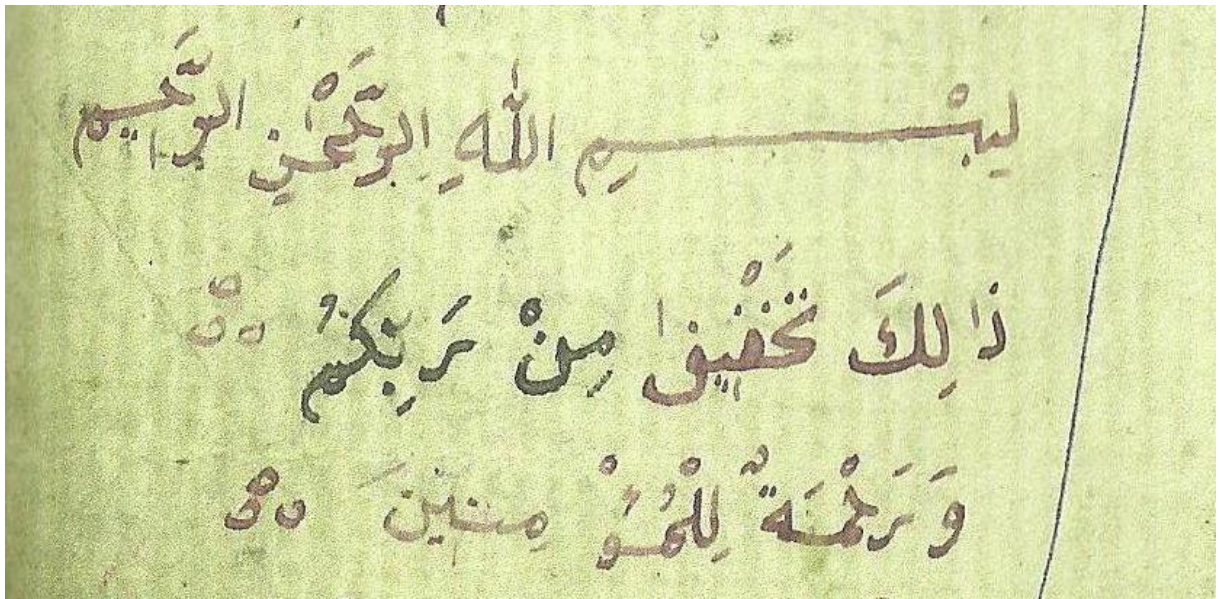 لِبْسِمِ اللّٰهِ الرَّحْمٰنِ الرَّحِيم
ذَالِكَ تَخْفِيف مِنْ رَبِّكُمْ
وَرَحْمَةٌ لِلْمُؤْمِنِينَ